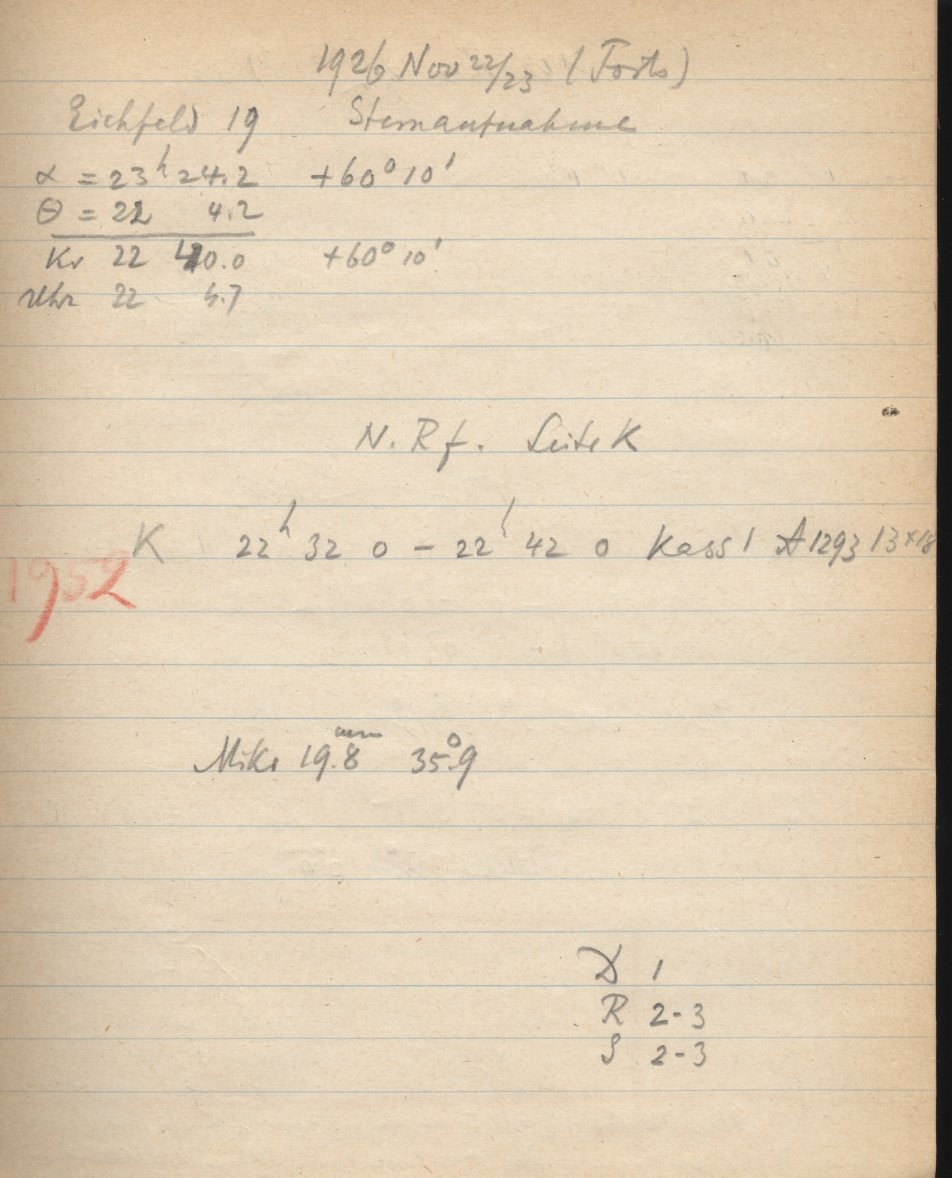 1926 Nov 22/23 (Forts)
Eichfeld 19 Sternaufnahme
α = 23h 24.2 +60° 10'
θ = 22 4.2
Kr 22 40.0 +60° 10'
Uhr 22 5.7
N. Rf. Seite K
K 22h 32 0 – 22h 42 0 Kass 1 A 1293 13×18
1952
Mikr 19.8mm 35°.9
D 1
R 2-3
S 2-3